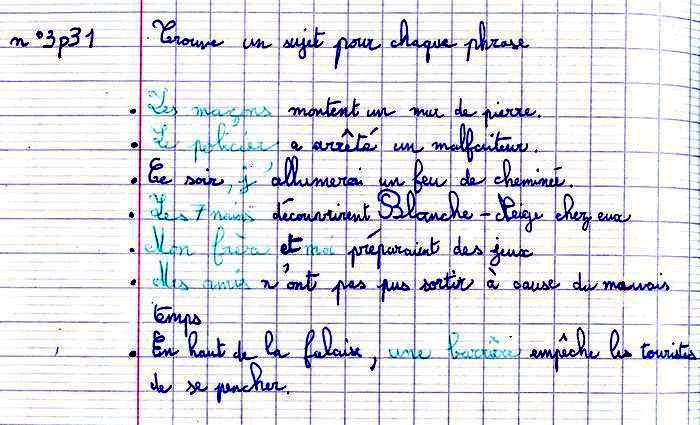 n°3p31 Trouve un sujet pour chaque phrase
• Les maçons montent un mur de pierre.
• Le policier a arrêté un malfaiteur.
• Ce soir, j'allumerai un feu de cheminée.
• Les 7 nains découvrirent Blanche-Neige chez eux
• Mon frère et moi préparaient des jeux
• Mes amis n'ont pas pus sortir à cause du mauvais
temps
• En haut de la falaise, une barrière empêche les touristes
de se pencher.